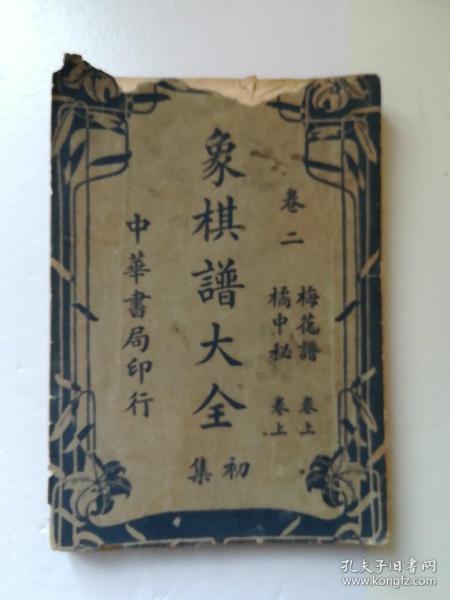 卷二
梅花譜 卷上
橘中秘 卷上
象棋譜大全
初集
中華書局印行
孔夫子旧书网
www.kongfz.com